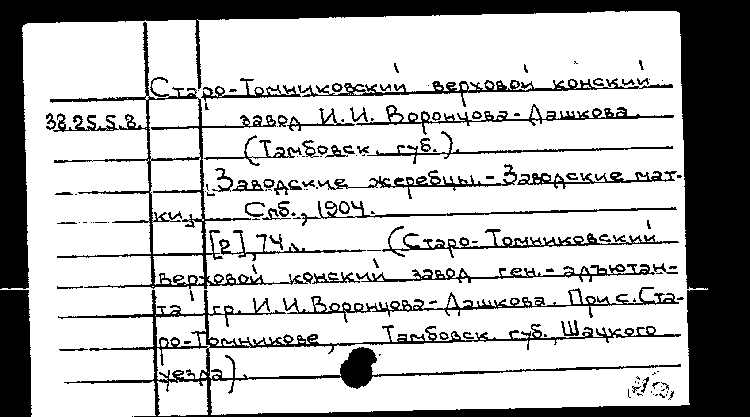 Старо-Томниковский верховой конский
38.25.5.2. завод И.И. Воронцова-Дашкова.
(Тамбовск. губ.).
[Заводские жеребцы. - Заводские мат-
ки]. Спб., 1904.
[2], 74 л. (Старо-Томниковский
верховой конский завод ген.-адъютан-
та гр. И.И. Воронцова-Дашкова. При с. Ста-
ро-Томникове, Тамбовск. губ., Шацкого
уезда).